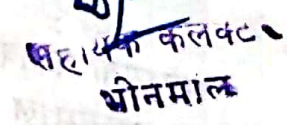 सहायक कलक्टर
भीनमाल